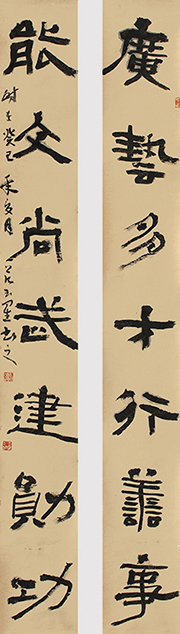 廣藝多才行善事
能文尚武建勛功
時在癸巳